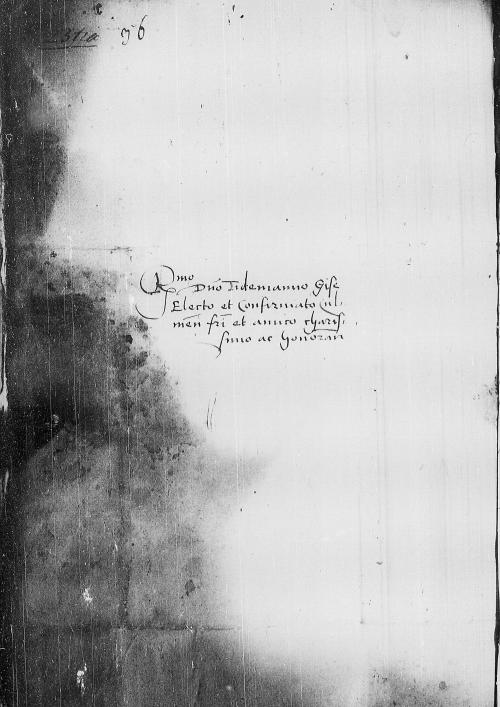 36
Rmo
Dno Tidemanno Gise
Electo et Confirmato Cul-
men fri et amico charis-
simo ac honoran